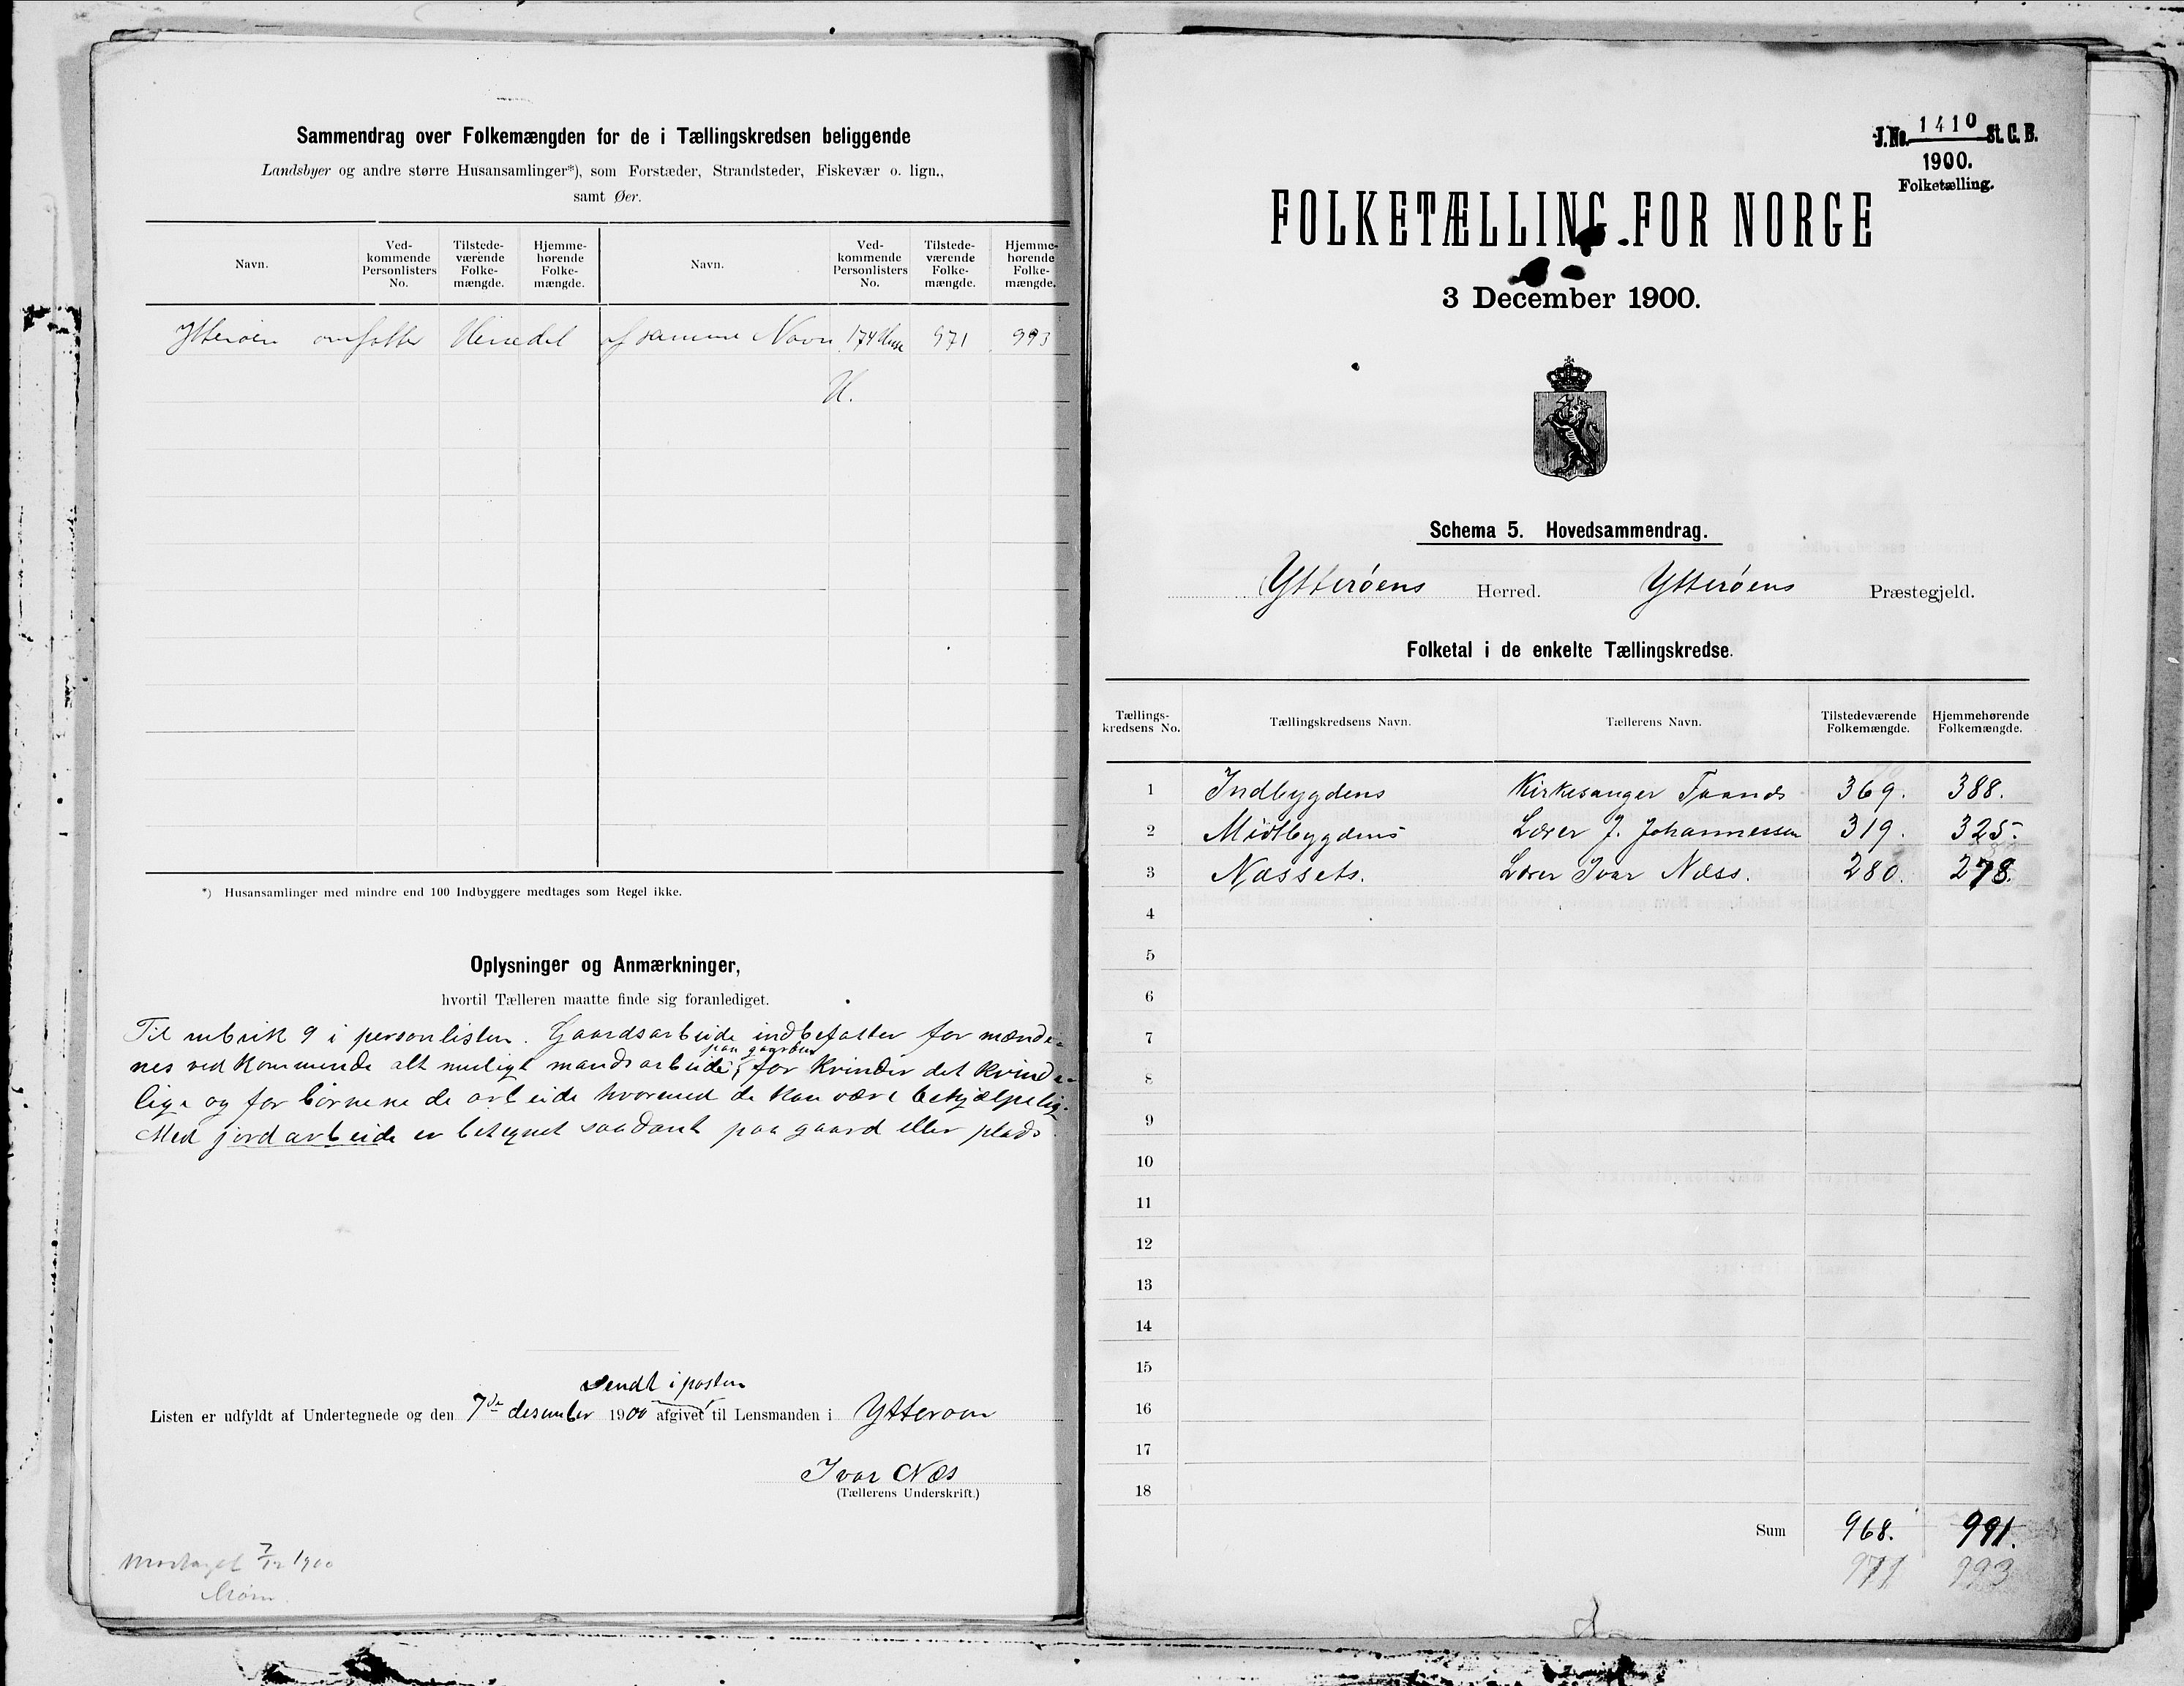 Sammendrag over Folkemængden for de i Tællingskredsen beliggende
Landsbyer og andre større Husansamlinger*), som Forstæder, Strandsteder, Fiskevær o. lign.,
samt Øer.
Navn. Ved-kommende Personlisters No. Tilstede-værende Folke-mængde. Hjemme-hørende Folke-mængde. Navn. Ved-kommende Personlisters No. Tilstede-værende Folke-mængde. Hjemme-hørende Folke-mængde.
Ytterøen omfatter Herredet af samme Navn 174 Huse 971 993
*) Husansamlinger med mindre end 100 Indbyggere medtages som Regel ikke.
Oplysninger og Anmærkninger,
hvortil Tælleren maatte finde sig foranlediget.
Til rubrik 9 i personlisten. Gaardsarbeide indbefatter for mænde-
paa gaarden
nes vedkommende alt muligt mandsarbeide, for kvinder det kvinde-
lige og for börnene de arbeide hvormed de kan være behjælpelig.
Med jordarbeide er betegnet saadant paa gaard eller plads
sendt i posten
Listen er udfyldt af Undertegnede og den 7de desember 1900 afgivet til Lensmanden i Ytterøen
Ivar Næs
(Tællerens Underskrift.)
Modtaget 7/12 1900
J.No. 1410 St. C. B.
1900.
Folketælling.
FOLKETÆLLING FOR NORGE
3 December 1900.
Schema 5. Hovedsammendrag.
Ytterøens Herred. Ytterøens Præstegjeld.
Folketal i de enkelte Tællingskredse.
Tællings-kredsens No. Tællingskredsens Navn. Tællerens Navn. Tilstedeværende Folkemængde. Hjemmehørende Folkemængde.
1 Indbygdens Kirkesanger 369. 388.
2 Midtbygdens Lærer J. Johannessen 319. 325.
3 Næssets. Lærer Ivar Næss. 280. 278.
4
5
6
7
8
9
10
11
12
13
14
15
16
17
18
Sum 968. 991.
971 993